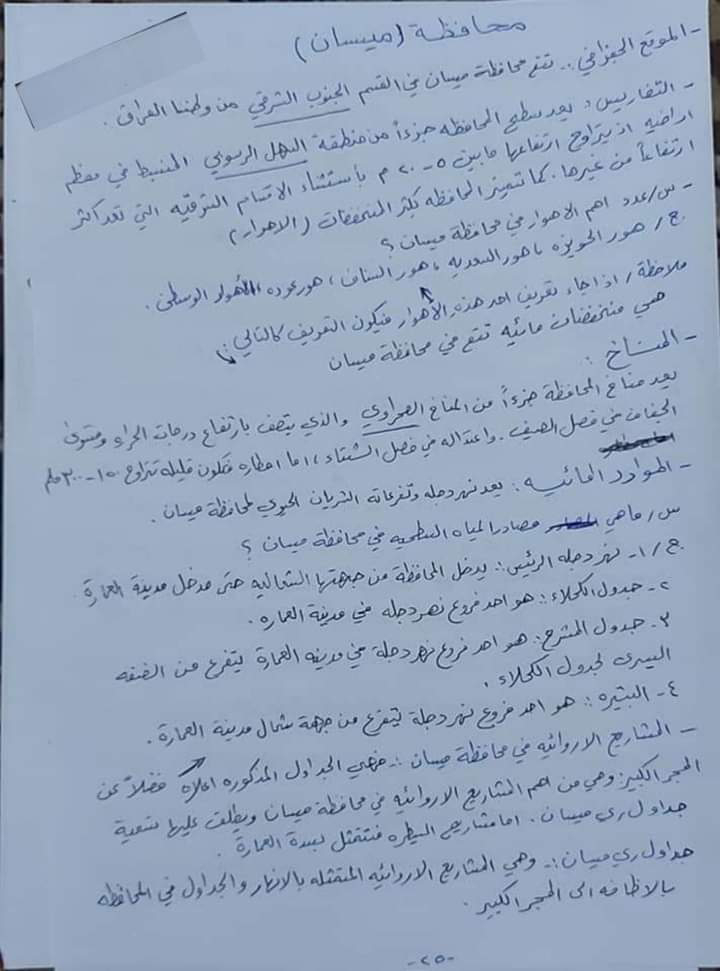 محافظة (ميسان)
- الموقع الجغرافي :. تقع محافظة ميسان في القسم الجنوب الشرقي من وطننا العراق .
- التضاريس : يعد سطح المحافظه جزءاً من منطقة السهل الرسوبي المنبسط في معظم
اراضيه اذ يتراوح ارتفاعها ما بين ٥ - ٢٠ م بأستثناء الاقسام الشرقيه التي تعد اكثر
ارتفاعاً من غيرها . كما تتميز المحافظه بكثر المنخفضات (الاهوار)
- س/ عدد اهم الاهوار في محافظة ميسان ؟
ج / هور الحويزه ، هور السعديه ، هور السناف ، هور عوده ، الأهوار الوسطى .
ملاحظة / اذا جاء تعريف احد هذه الأهوار فيكون التعريف كالتالي :
هي منخفضات مائيه تقع في محافظة ميسان
- المناخ :
يعد مناخ المحافظة جزءاً من المناخ الصحراوي والذي يتصف بارتفاع درجات الحراره
الجفاف في فصل الصيف . واعتداله في فصل الشتاء ، اما امطاره فتكون قليله تتراوح ١٥٠ - ٣٠٠ ملم
- الموارد المائيه : يعد نهر دجله وتفرعاته الشريان الحيوي لمحافظة ميسان .
س / ماهي مصادر المياه السطحيه في محافظة ميسان ؟
ج / ١- نهر دجله الرئيس :. يدخل المحافظة من جهتها الشماليه حتى مدخل مدينة العمارة
٢- جدول الكحلاء :. هو احد فروع نهر دجله في مدينة العماره .
٣- جدول المشرح :. هو احد فروع نهر دجلة في مدينه العمارة يتفرع من الضفه
اليسرى لجدول الكحلاء .
٤- البتيره :. هو احد فروع نهر دجلة يتفرع من جهة شمال مدينة العمارة .
- المشاريع الاروائيه في محافظة ميسان :. فهي الجداول المذكوره اعلاه فضلاً عن
المجر الكبير وهي من اهم المشاريع الاروائيه في محافظة ميسان ويطلق عليها تسمية
جداول ري ميسان . اما مشاريع السيطره فتتمثل بسدة العمارة .
جداول ري ميسان :. وهي المشاريع الاروائيه المتمثله بالانهار والجداول في المحافظه
بالاظافه الى المجر الكبير .
-٢٥-